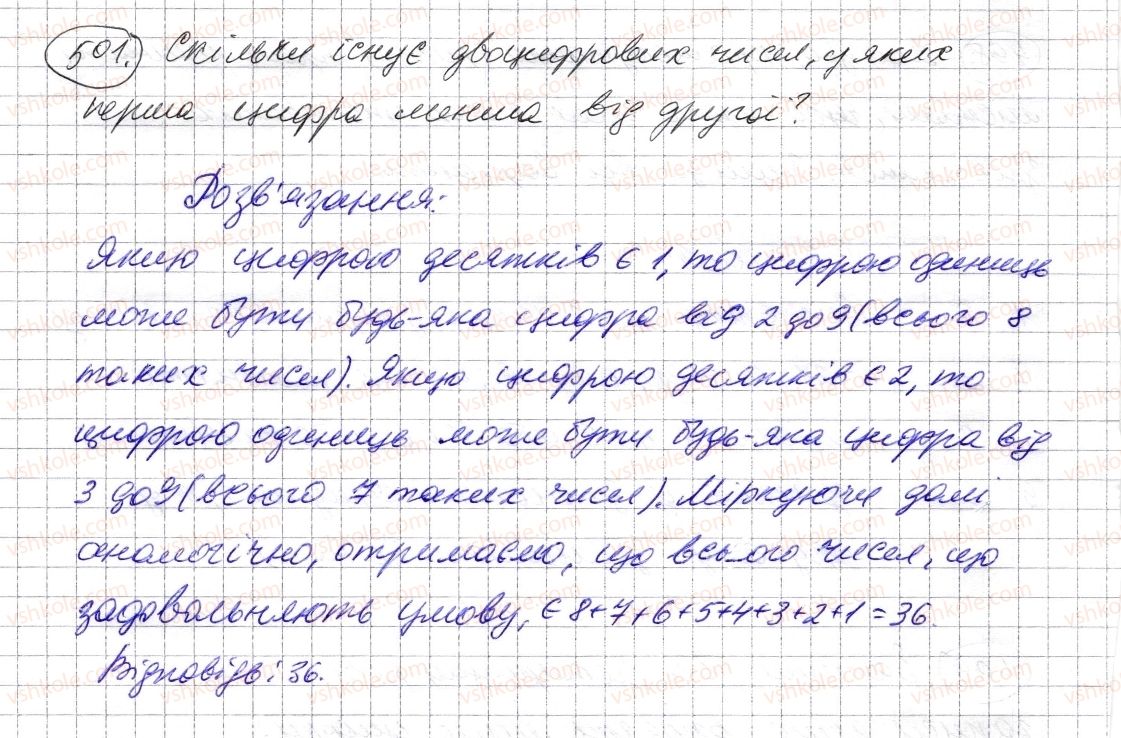 501. Скільки існує двоцифрових чисел, у яких
перша цифра менша від другої?
Розв'язання:
Якщо цифрою десятків є 1, то цифрою одиниць
може бути будь-яка цифра від 2 до 9 (всього 8
таких чисел). Якщо цифрою десятків є 2, то
цифрою одиниць може бути будь-яка цифра від
3 до 9 (всього 7 таких чисел). Міркуючи далі
аналогічно, отримаємо, що всього чисел, що
задовольняють умову, є 8+7+6+5+4+3+2+1=36.
Відповідь: 36.